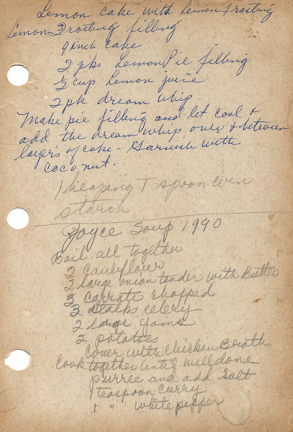 Lemon cake with lemon Frosting
Lemon Frosting filling
9 inch cake
2 pks Lemon Pie filling
½ cup lemon juice
2 pk dream whip
Make pie filling and let cool +
add the dream whip over + between
layers of cake - Garnish with
coconut.
1 heaping T spoon corn
starch
Joyce Soup 1990
Boil all together
2 cauliflour
2 large onion tender with Butter
3 carrots chopped
3 stalks celery
2 large yams
2 potatoes
Cover with Chicken Broth
Cook together until well done
purree and add Salt
1 teaspoon curry
1 " white pepper